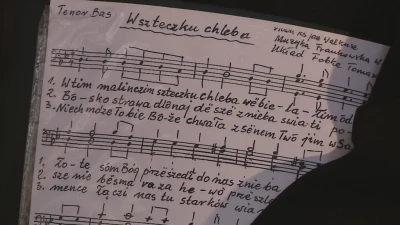 Tenor Bas
W sztëczku chleba
Muzyka Frankowska W
Układ Fobke Tomasz
1. W tim malinczim sztëczku chleba wëbie-la-łim òd
2. Bò-skô strawa dlô naj dësze z nieba swia-ti po-
3. Niech mdze Tobie Bò-że chwała z sënem Twò jim w Sa
1. Zo-të sóm Bóg przëszedł do nas z nieba
2. sze nie bësmë raza he-wò przëszlë
3. mence łączi nas tu stark ów wia